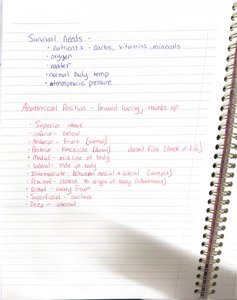 Survival Needs -
• nutrients - carbs, vitamins, minerals
• oxygen
• water
• normal body temp
• atmospheric pressure
Anatomical Position - forward facing, thumbs up
• Superior - above
• inferior - below
• Anterior - Front (ventral)
• Posterior - backside (dorsal) dorsal fin (back of fish)
• Medial - mid line of body
• Lateral - side of body
• Intermediate - between medial & lateral (armpit)
• Proximal - closest to origin of body (attachment)
• Distal - away from
• Superficial - surface
• Deep - internal